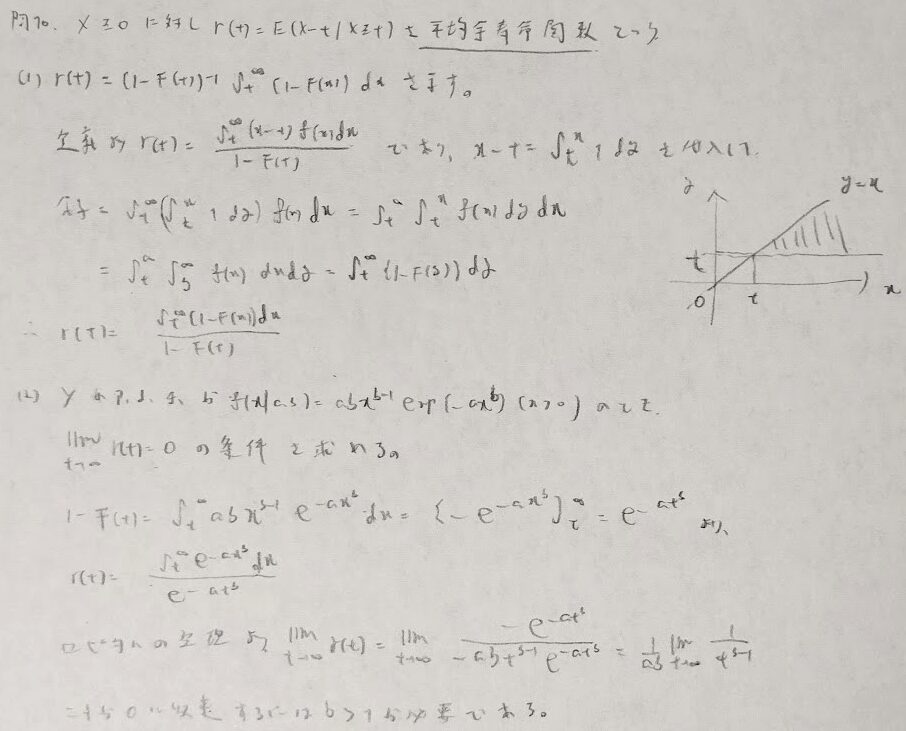 問10. X≥0 に対し r(t)=E(X-t|X≥t) を 平均余寿命関数 という
(1) r(t) = (1-F(t))⁻¹ ∫_t^∞ (1-F(x)) dx を示す。
定義より r(t) = ∫_t^∞ (x-t) f(x)dx / (1-F(t)) であり, x-t = ∫_t^x 1 dy を代入して.
分子 = ∫_t^∞ (∫_t^x 1 dy) f(x) dx = ∫_t^∞ ∫_t^x f(x) dy dx
= ∫_t^∞ ∫_y^∞ f(x) dx dy = ∫_t^∞ (1-F(y)) dy
∴ r(t) = ∫_t^∞ (1-F(x))dx / (1-F(t))
y
y=x
t
0
t
x
(2) X の p.d.f. が f(x|a,b) = abx^{b-1} exp(-ax^b) (x>0) のとき.
lim_{t→∞} r(t)=0 の条件を求める。
1-F(t) = ∫_t^∞ abx^{b-1} e^{-ax^b} dx = [-e^{-ax^b}]_t^∞ = e^{-at^b} より,
r(t) = ∫_t^∞ e^{-ax^b} dx / e^{-at^b}
ロピタルの定理より lim_{t→∞} r(t) = lim_{t→∞} -e^{-at^b} / (-abt^{b-1} e^{-at^b}) = 1/ab lim_{t→∞} 1/t^{b-1}
これが0に収束するには b>1 が必要である。